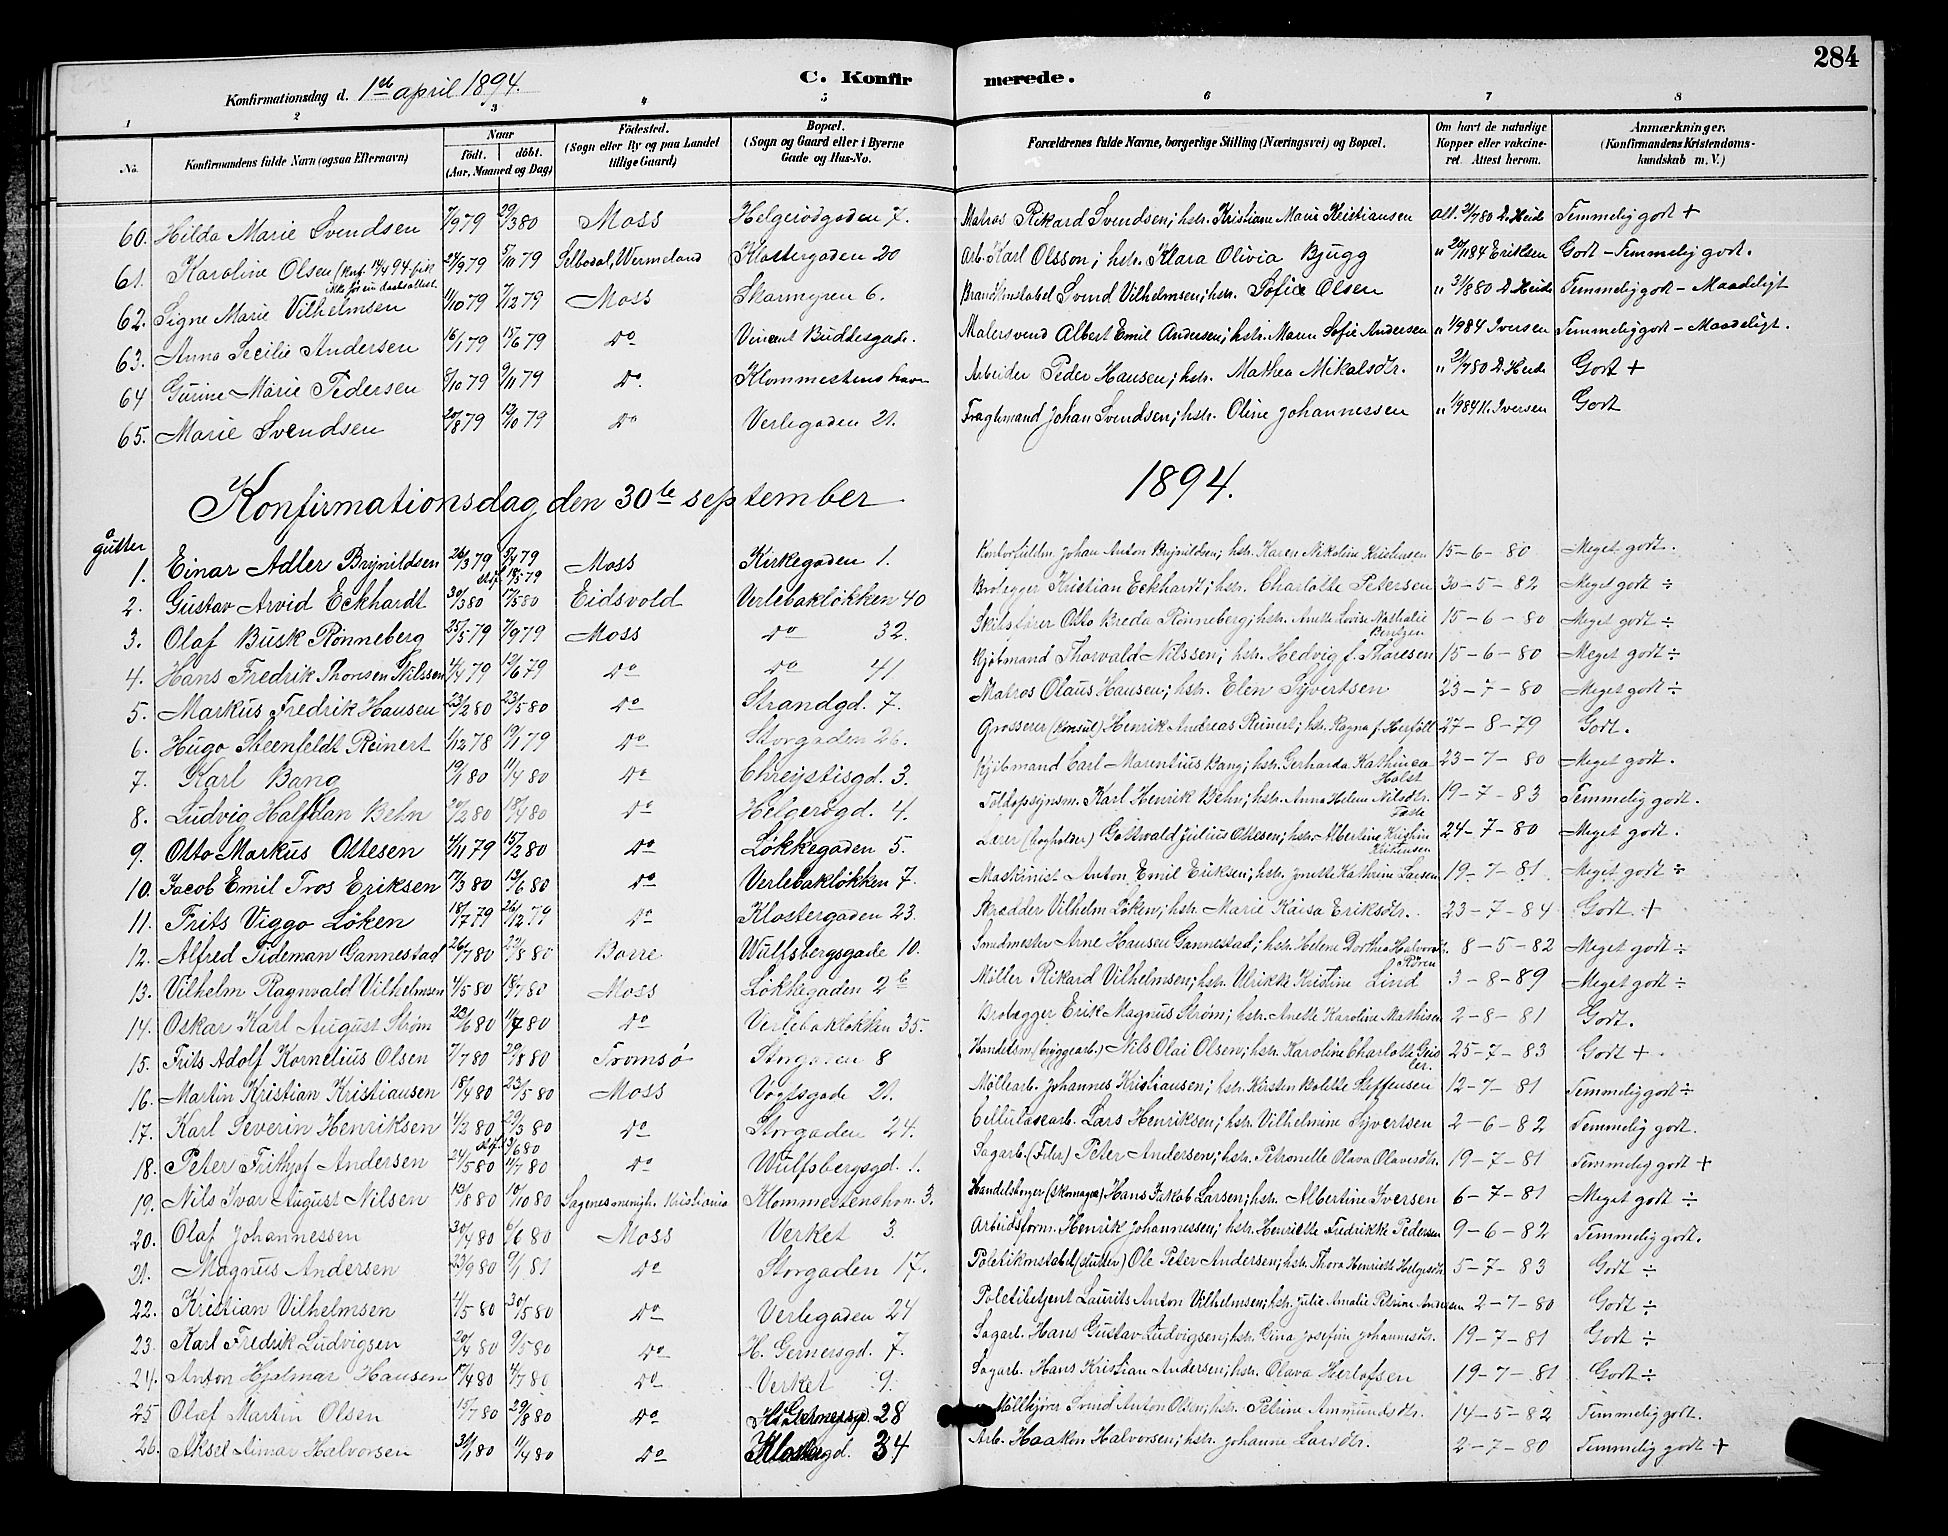 284
C. Konfir merede.
Konfirmationsdag d. 1ste april 1894.
1 2 3 4 5 6 7 8
No. Konfirmandens fulde Navn (ogsaa Efternavn) Naar födt. döbt. (Aar, Maaned og Dag) Födested. (Sogn eller By og paa Landet tillige Gaard) Bopæl. (Sogn og Gaard eller i Byerne Gade og Hus-No. Forældrenes fulde Navne, borgerlige Stilling (Næringsvei) og Bopæl. Om havt de naturlige Kopper eller vaccineret. Attest herom. Anmærkninger. (Konfirmandens Kristendomskundskab m. V.)
60. Hilda Marie Svendsen 7/9 79 29/3 80 Moss Helgerødgaden 7. Matros Rikard Svendsen; hstr. Kristiane Marie Kristiansen att. 2/7 80 D. Heide Temmelig godt +
61. Karoline Olsen 27/9 79 5/10 79 Selbodal, Vermeland Klostergaden 20 Arb. Karl Olsson; hstr. Klara Olivia Bjugg " 20/11 84 Eriksen Godt - Temmelig godt.
62. Signe Marie Vilhelmsen 4/10 79 7/12 79 Moss Skarmyren 6. Brandkonstabel Svend Vilhelmsen; hstr. Sofie Olsen " 3/8 80 D. Heide Temmelig godt - Maadeligt
63. Anna Secilie Andersen 16/1 79 15/6 79 Do Vincent Buddesgade. Malersvend Albert Emil Andersen; hstr. Maren Sofie Andersen " 1/9 84 Iversen Temmelig godt - Maadeligt.
64 Gurine Marie Pedersen 8/10 79 9/11 79 Do. Klommestenshavn Arbeider Peder Hansen; hstr. Mathea Mikalsdtr. " 2/7 80 D. Heide Godt +
65. Marie Svendsen 20/8 79 12/10 79 Do Verlegaden 21. Fragtemand Johan Svendsen; hstr. Oline Johannessen " 1/9 84 N. Iversen Godt
Konfirmationsdag den 30te september 1894.
a gutter
1. Einar Adler Brynildsen 26/3 79 5/4 79 stf. 18/5 79 Moss Kirkegaden 1. Kontorfuldm. Johan Anton Brynildsen; hstr. Karen Nikoline Kristensen 15-6-80 Meget godt.
2. Gustav Arvid Eckhardt 30/3 80 17/5 80 Eidsvold Verlebakløkken 40 Brolegger Kristian Eckhardt; hstr. Charlotte Petersen 30-5-82 Meget godt ÷
3. Olaf Busk Rønneberg 25/5 79 7/9 79 Moss Do 32. Skibsfører Otto Breda Rønneberg; hstr. Anette Lovise Nathalie Berntzen 15-6-80 Meget godt ÷
4. Hans Fredrik Thoresen Nilssen 4/4 79 12/6 79 Do Do 41 Kjøbmand Thorvald Nilssen; hstr. Hedvig f. Thoresen 15-6-80 Meget godt ÷
5. Markus Fredrik Hansen 23/2 80 23/5 80 Do Strandgd. 7. Matros Olaus Hansen; hstr. Elen Syvertsen 23-7-80 Meget godt ÷
6. Hugo Steenfeldt Reinert 1/12 78 19/1 79 Do Storgaden 26. Grosserer (Konsul) Henrik Andreas Reinert; hstr. Ragna f. Herföll 27-8-79 Godt.
7. Karl Bang 19/1 80 11/4 80 Do Chrystisgd. 3. Kjøbmand Carl Marentius Bang; hstr. Gerharda Kathinca Holst 23-7-80 Meget godt.
8. Ludvig Halfdan Behn 20/2 80 18/4 80 Do Helgerøgd. 4. Toldopsynsm. Karl Henrik Behn; hstr. Anna Helene Nilsdtr. 19-7-83 Temmelig godt.
9. Otto Markus Ottesen 4/11 79 15/2 80 Do Løkkegaden 5. Lærer (bogholder) Gottvald Julius Ottesen; hstr. Albertine Kristine Kristensen 24-7-80 Meget godt.
10. Jacob Emil Tros Eriksen 17/3 80 13/6 80 Do Verlebakløkken 7. Maskinist Anton Emil Eriksen; hstr. Jonette Kathrine Larsen 19-7-81. Meget godt ÷
11. Frits Viggo Löken 18/7 79 26/12 79 Do Klostergaden 23. Skrædder Vilhelm Löken; hstr. Marie Kaisa Eriksdtr. 23-7-84 Godt. +
12. Alfred Tideman Gannestad 26/7 80 29/8 80 Borre Wulfsbergsgade 10. Sandmester Arne Hansen Gannestad; hstr. Helene Dorthea Halvorsdtr. Røren 8-5-82 Meget godt ÷
13. Vilhelm Ragnvald Vilhelmsen 4/5 80 18/7 80 Moss Løkkegaden 2 b Møller Rikard Vilhelmsen; hstr. Ulrikke Kristine Lind 3-8-89 Meget godt ÷
14. Oskar Karl August Strøm 23/6 80 11/7 80 Do Verlebakløkken 35. Brolægger Erik Magnus Strøm; hstr. Anette Karoline Mathisen 2-8-81 Godt.
15. Frits Adolf Kornelius Olsen 7/7 80 29/8 80 Tromsø Storgaden 8 Handelsm. (bryggearb.) Nils Olai Olsen; hstr. Karoline Charlotte Geisler. 25-7-83 Godt +
16. Martin Kristian Kristiansen 18/4 80 23/5 80 Moss Vogtsgade 21. Møllearb. Johannes Kristiansen; hstr. Kirsten Bolette Steffensen 12-7-81 Temmelig godt ÷
17. Karl Severin Henriksen 4/3 80 29/3 80 stf. 13/6 80 Do Storgaden 24. Cellulosearb. Lars Henriksen; hstr. Vilhelmine Syvertsen 2-6-82 Temmelig godt.
18. Peter Frithjof Andersen 24/5 80 11/7 80 Do Wulfsbergsgd. 1. Sagarb. (Filer) Peter Andersen; hstr. Petronelle Olava Olavesdtr. 19-7-81 Temmelig godt +
19. Nils Ivar August Nilsen 13/8 80 10/10 80 Sagenes menigh. Kristiania Klommestenshvn. 3. Handelsborger (Skomager) Hans Jakob Larsen; hstr. Albertine Iversen 6-7-81 Meget godt ÷
20. Olaf Johannessen 30/4 80 6/6 80 Moss Verket 3. Arbeidsform. Henrik Johannessen; hstr. Henriette Fredrikke Pedersen 9-6-82 Temmelig godt.
21. Magnus Andersen 23/9 80 9/1 81 Do Storgaden 17. Politikonstabel (slutter) Ole Peter Andersen; hstr. Thora Henriette Helgesdtr. 5-7-83 Godt ÷
22. Kristian Vilhelmsen 4/5 80 30/5 80 Do Verlegaden 24 Politibetjent Laurits Anton Vilhelmsen; hstr. Julie Amalie Petrine Andersen 2-7-80 Godt ÷
23. Karl Fredrik Ludvigsen 20/4 80 9/5 80 Do H. Gernersgd. 7. Sagarb. Hans Gustav Ludvigsen; hstr. Gina Josefine Johannesdtr. 19-7-81 Godt ÷
24. Anton Hjalmar Hansen 17/4 80 4/7 80 Do Verket 9. Sagarb. Hans Kristian Andersen; hstr. Olava Herlofsen 19-7-81 Godt ÷
25 Olaf Martin Olsen 15/7 80 29/8 80 Do H. Gernersgd. 28 Mølkjører Svend Anton Olsen; hstr. Petrine Ammundsdtr. 14-5-82 Temmelig godt.
26. Aksel Aimar Halvorsen 31/1 80 11/4 80 Do Klostergd. 34 Arb. Haakon Halvorsen; hstr. Johanne Larsdtr. 2-7-80 Temmelig godt +